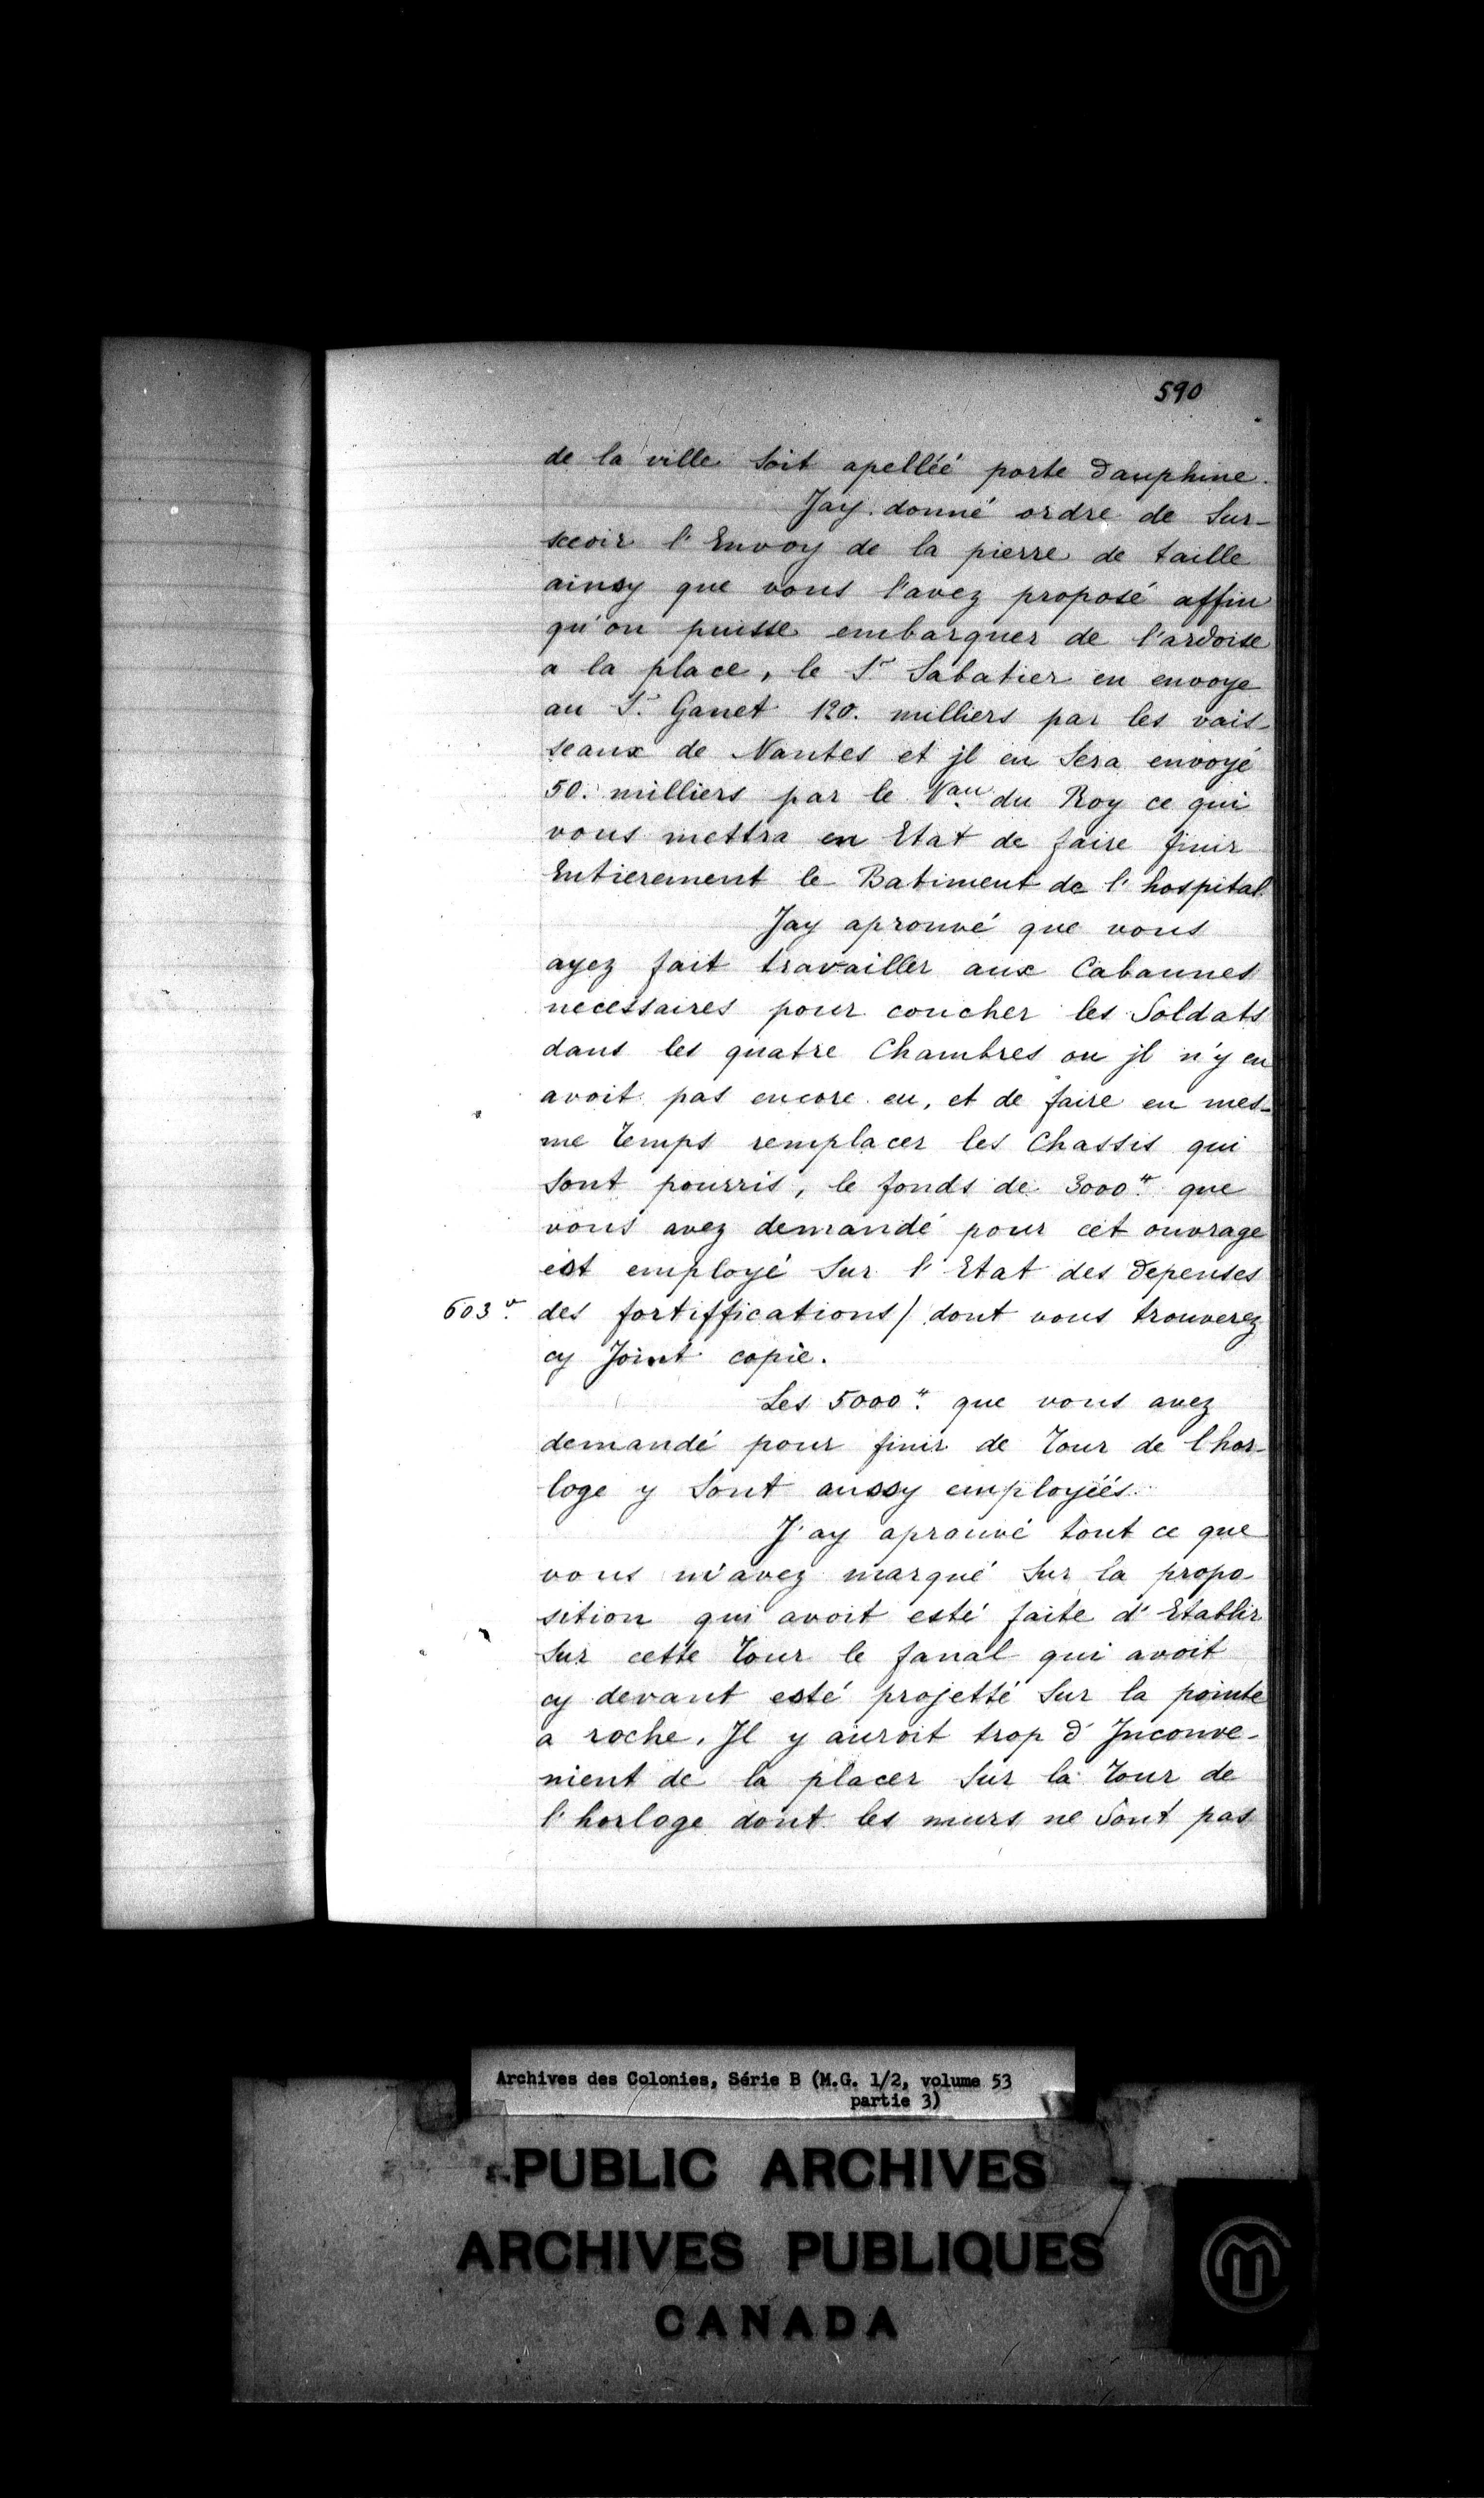 590
de la ville soit apelléé porte Dauphine.
Jay donné ordre de Sur-
seeoir l'Envoy de la pierre de taille
ainsy que vous l'avez proposé affin
qu'on puisse embarquer de l'ardoise
a la place, le Sr Sabatier en envoye
au Sr. Ganet 120. milliers par les vais-
seaux de Nantes et jl en Sera envoyé
50. milliers par le Vau. du Roy ce qui
vous mettra en Etat de faire finir
Entierement le Batiment de l'hospital.
Jay aprouvé que vous
ayez fait travailler aux Cabannes
necessaires pour coucher les Soldats
dans les quatre Chambres ou jl n'y en
avoit pas encore eu, et de faire en mes-
me temps remplacer les Chassis qui
Sont pourris, le fonds de 3000# que
vous avez demandé pour cet ouvrage
est employé Sur l'Etat des Depenses
603 v. des fortiffications/ dont vous trouverez
cy Joint copie.
Les 5000# que vous avez
demandé pour finir de Tour de l'hor-
loge y Sont aussy employéés.
J'ay aprouvé tout ce que
vous m'avez marqué Sur la propo-
sition qui avoit esté faite d'Etablir
Sur cette Tour le fanal qui avoit
cy devant esté projetté Sur la pointe
a roche. Jl y auroit trop d'Inconve-
nient de la placer Sur la Tour de
l'horloge dont les murs ne Sont pas
Archives des Colonies, Série B (M.G. 1/2, volume 53
partie 3)
PUBLIC ARCHIVES
ARCHIVES PUBLIQUES
CANADA